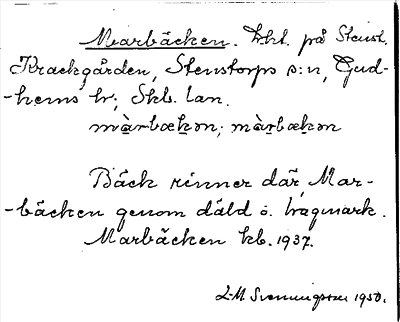 Marbäcken. Lht. på Stenst.
Krackgården, Stenstorps s:n, Gud-
-hems hr; Skb. län.
mà̱rbækən; mà̱rbækən
Bäck rinner där, Mar-
-bäcken genom däld o. hagmark.
Marbäcken kb. 1937.
L-M Svenningsson 1950.